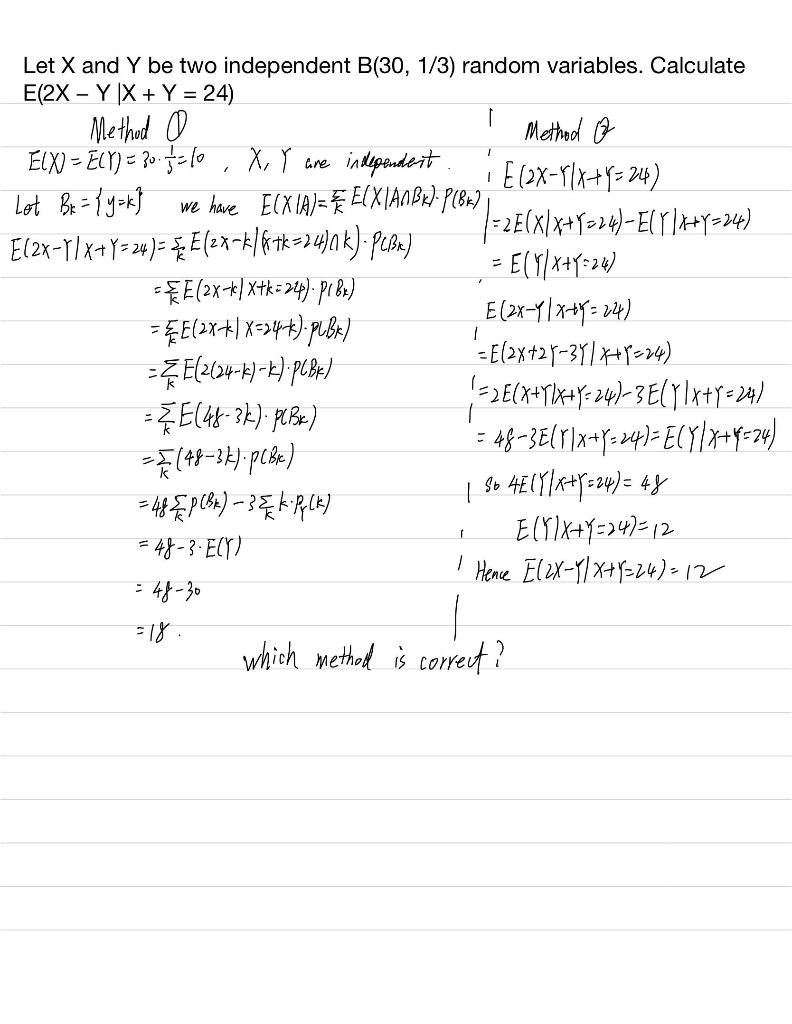 Let X and Y be two independent B(30, 1/3) random variables. Calculate
E(2X – Y |X + Y = 24)
Method ①
E(X) = E(Y) = 30·1/3 = 10 , X, Y are independent.
Let Bk = {y=k} we have E(X|A) = Σk E(X|A∩Bk)·P(Bk)
E(2X-Y|X+Y=24) = Σk E(2X-k|(X+k=24)∩k)·P(Bk)
= Σk E(2X-k|X+k=24)·P(Bk)
= Σk E(2X-k|X=24-k)·P(Bk)
= Σk E(2(24-k)-k)·P(Bk)
= Σk E(48-3k)·P(Bk)
= Σk (48-3k)·P(Bk)
= 48 Σk P(Bk) - 3 Σk k·PY(k)
= 48-3·E(Y)
= 48-30
= 18.
Method ②
E(2X-Y|X+Y=24)
= 2E(X|X+Y=24)-E(Y|X+Y=24)
= E(Y|X+Y=24)
E(2X-Y|X+Y=24)
= E(2X+2Y-3Y|X+Y=24)
= 2E(X+Y|X+Y=24)-3E(Y|X+Y=24)
= 48-3E(Y|X+Y=24)=E(Y|X+Y=24)
So 4E(Y|X+Y=24)=48
E(Y|X+Y=24)=12
Hence E(2X-Y|X+Y=24)=12
which method is correct?